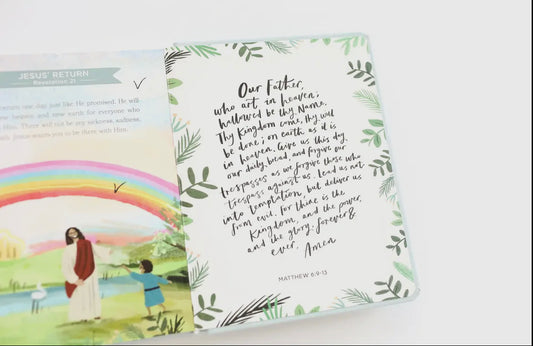 JESUS' RETURN
Revelation 21
return one day, just like He promised. He will
new heaven and new earth for everyone who
Him. There will not be any sickness, sadness,
Jesus wants you to be there with Him.
Our Father,
who art in heaven,
hallowed be thy Name.
Thy Kingdom come, thy will
be done, on earth as it is
in heaven. Give us this day,
our daily bread, and forgive our
trespasses as we forgive those who
trespass against us. Lead us not
into temptation, but deliver us
from evil. For thine is the
Kingdom, and the power,
and the glory, forever &
ever, Amen
MATTHEW 6:9-13